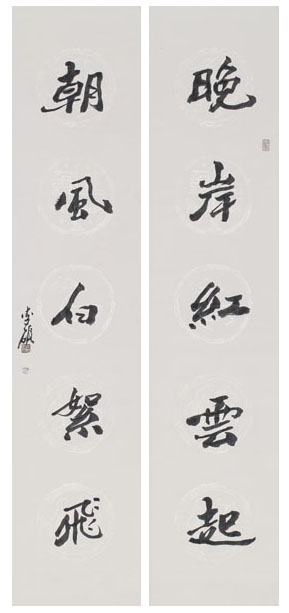 晚岸紅雲起
朝風白絮飛